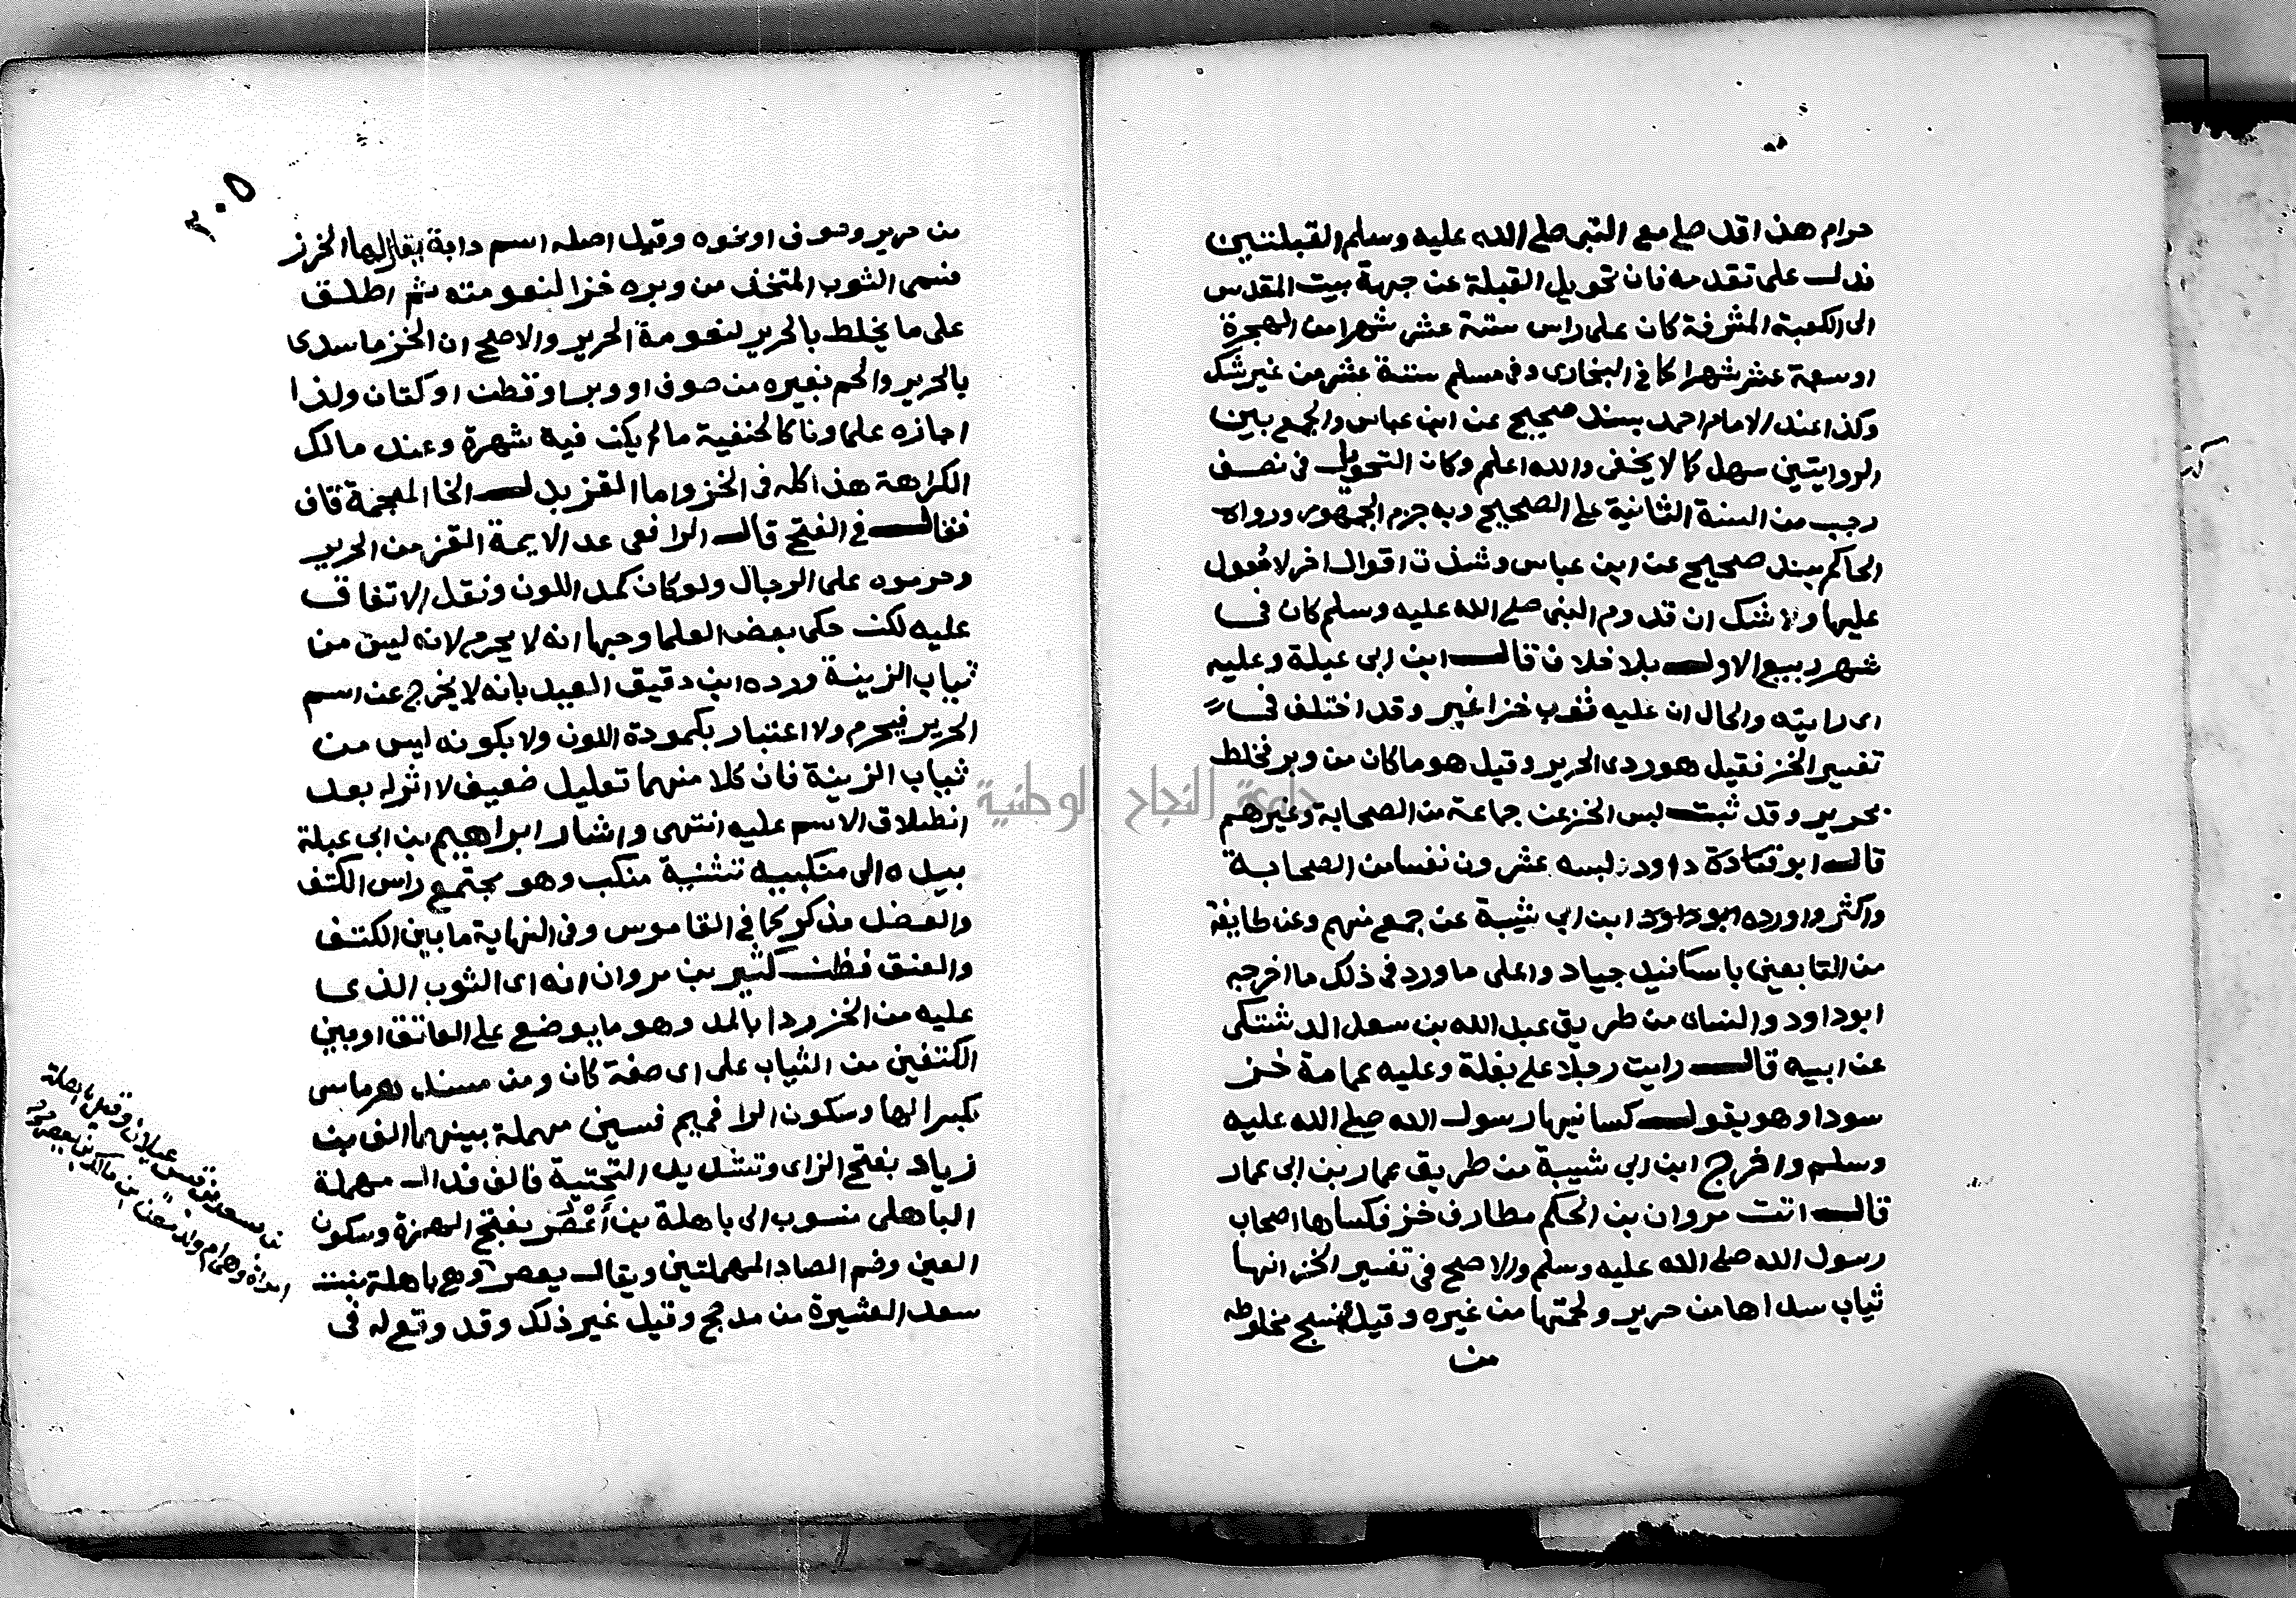 حرام هذا قد صلى مع النبي صلى الله عليه وسلم القبلتين
فدل على تقدمه فان تحويل القبلة عن جهة بيت المقدس
الى الكعبة المشرفة كان على راس ستة عشر شهرا من الهجرة
او سبعة عشر شهرا كما في البخارى وفى مسلم ستة عشر من غير شك
وكذا عند الامام احمد بسند صحيح عن ابن عباس والجمع بين
الروايتين سهل كما لا يخفى والله اعلم وكان التحويل فى نصف
رجب من السنة الثانية على الصحيح وبه جزم الجمهور ورواه
الحاكم بسند صحيح عن ابن عباس وشذت اقوال اخر لا معول
عليها ولا شك ان قدوم النبى صلى الله عليه وسلم كان فى
شهر ربيع الاول بلا خلاف قال ابن ابى عبلة وعليه
اى رايته والحال ان عليه ثوب خز اغبر وقد اختلف فى
تفسير الخز فقيل هو ردى الحرير وقيل هو ما كان من وبر مخلط
بحرير وقد ثبت لبس الخز عن جماعة من الصحابة وغيرهم
قال ابو داود لبسه عشرون نفسا من الصحابة
واكثر واورده ابن ابي شيبة عن جمع منهم وعن طايفة
من التابعين باسانيد جياد واعلى ما ورد فى ذلك ما اخرجه
ابو داود والنساى من طريق عبد الله بن سعد الدشتكى
عن ابيه قال رايت رجلا على بغلة وعليه عمامة خز
سودا وهو يقول كسانيها رسول الله صلى الله عليه
وسلم واخرج ابن ابي شيبة من طريق عمار بن ابى عمار
قال اتت مروان بن الحكم مطارف خز فكساها اصحاب
رسول الله صلى الله عليه وسلم والاصح فى تفسير الخز انها
ثياب سداها من حرير ولحمتها من غيره وقيل تنسج مخلوطه
من
٣٠٥
من حرير وصوف او نحوه وقيل اصله اسم دابة يقال لها الخز
فسمى الثوب المتخذ من وبره خزا لنعومته ثم اطلق
على ما يخلط بالحرير لنعومة الحرير والاصح ان الخز ما سدى
بالحرير والحم بغيره من صوف او وبر او قطن او كتان ولذا
اجازه علماونا كالحنفية مالم يكن فيه شهرة وعند مالك
الكراهة هذا كله فى الخز واما القز بدل الخا المعجمة قاف
فقال فى الفتح قال الرافعى عد الايمة القز من الحرير
وحرموه على الرجال ولو كان كمد اللون ونقل الاتفاق
عليه لكن حكى بعض العلما وجها انه لا يحرم لانه ليس من
ثياب الزينة ورده ابن دقيق العيد بانه لا يخرج عن اسم
الحرير فيحرم ولا اعتبار بكمودة اللون ولا بكونه ليس من
ثياب الزينة فان كلا منهما تعليل ضعيف لا اثر له بعد
انطلاق الاسم عليه انتهى واشار ابراهيم بن ابى عبلة
بيده الى منكبيه تثنية منكب وهو مجتمع راس الكتف
والعضد مذكر كما في القاموس وفى النهاية ما بين الكتف
والعنق فظن كثير بن مروان انه اى الثوب الذى
عليه من الخز ردا بالمد وهو ما يوضع على العاتق او بين
الكتفين من الثياب على اى صفة كان ومن مسند هرماس
بكسر الها وسكون الرا فميم فسين مهملة بينهما الف بن
زياد بفتح الزاى وتشديد التحتية فالف فدال مهملة
الباهلى منسوب الى باهلة بن أعْصُر بفتح الهمزة وسكون
العين وضم الصاد المهملتين ويقال يعصر وهى باهلة بنت
سعد العشيرة من مذحج وقيل غير ذلك وقد وقع له فى
بن سعد بن قيس عيلان وقيل باهلة
امراة وهى ام ولد معن بن مالك بن يعصر